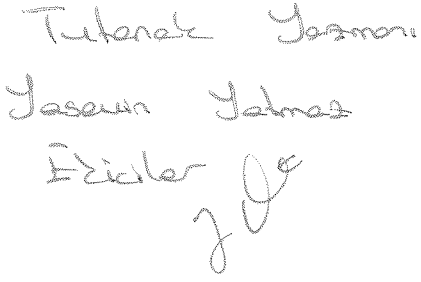 Tutanak Yazmanı
Yasemin Yatmaz
Ekiciler